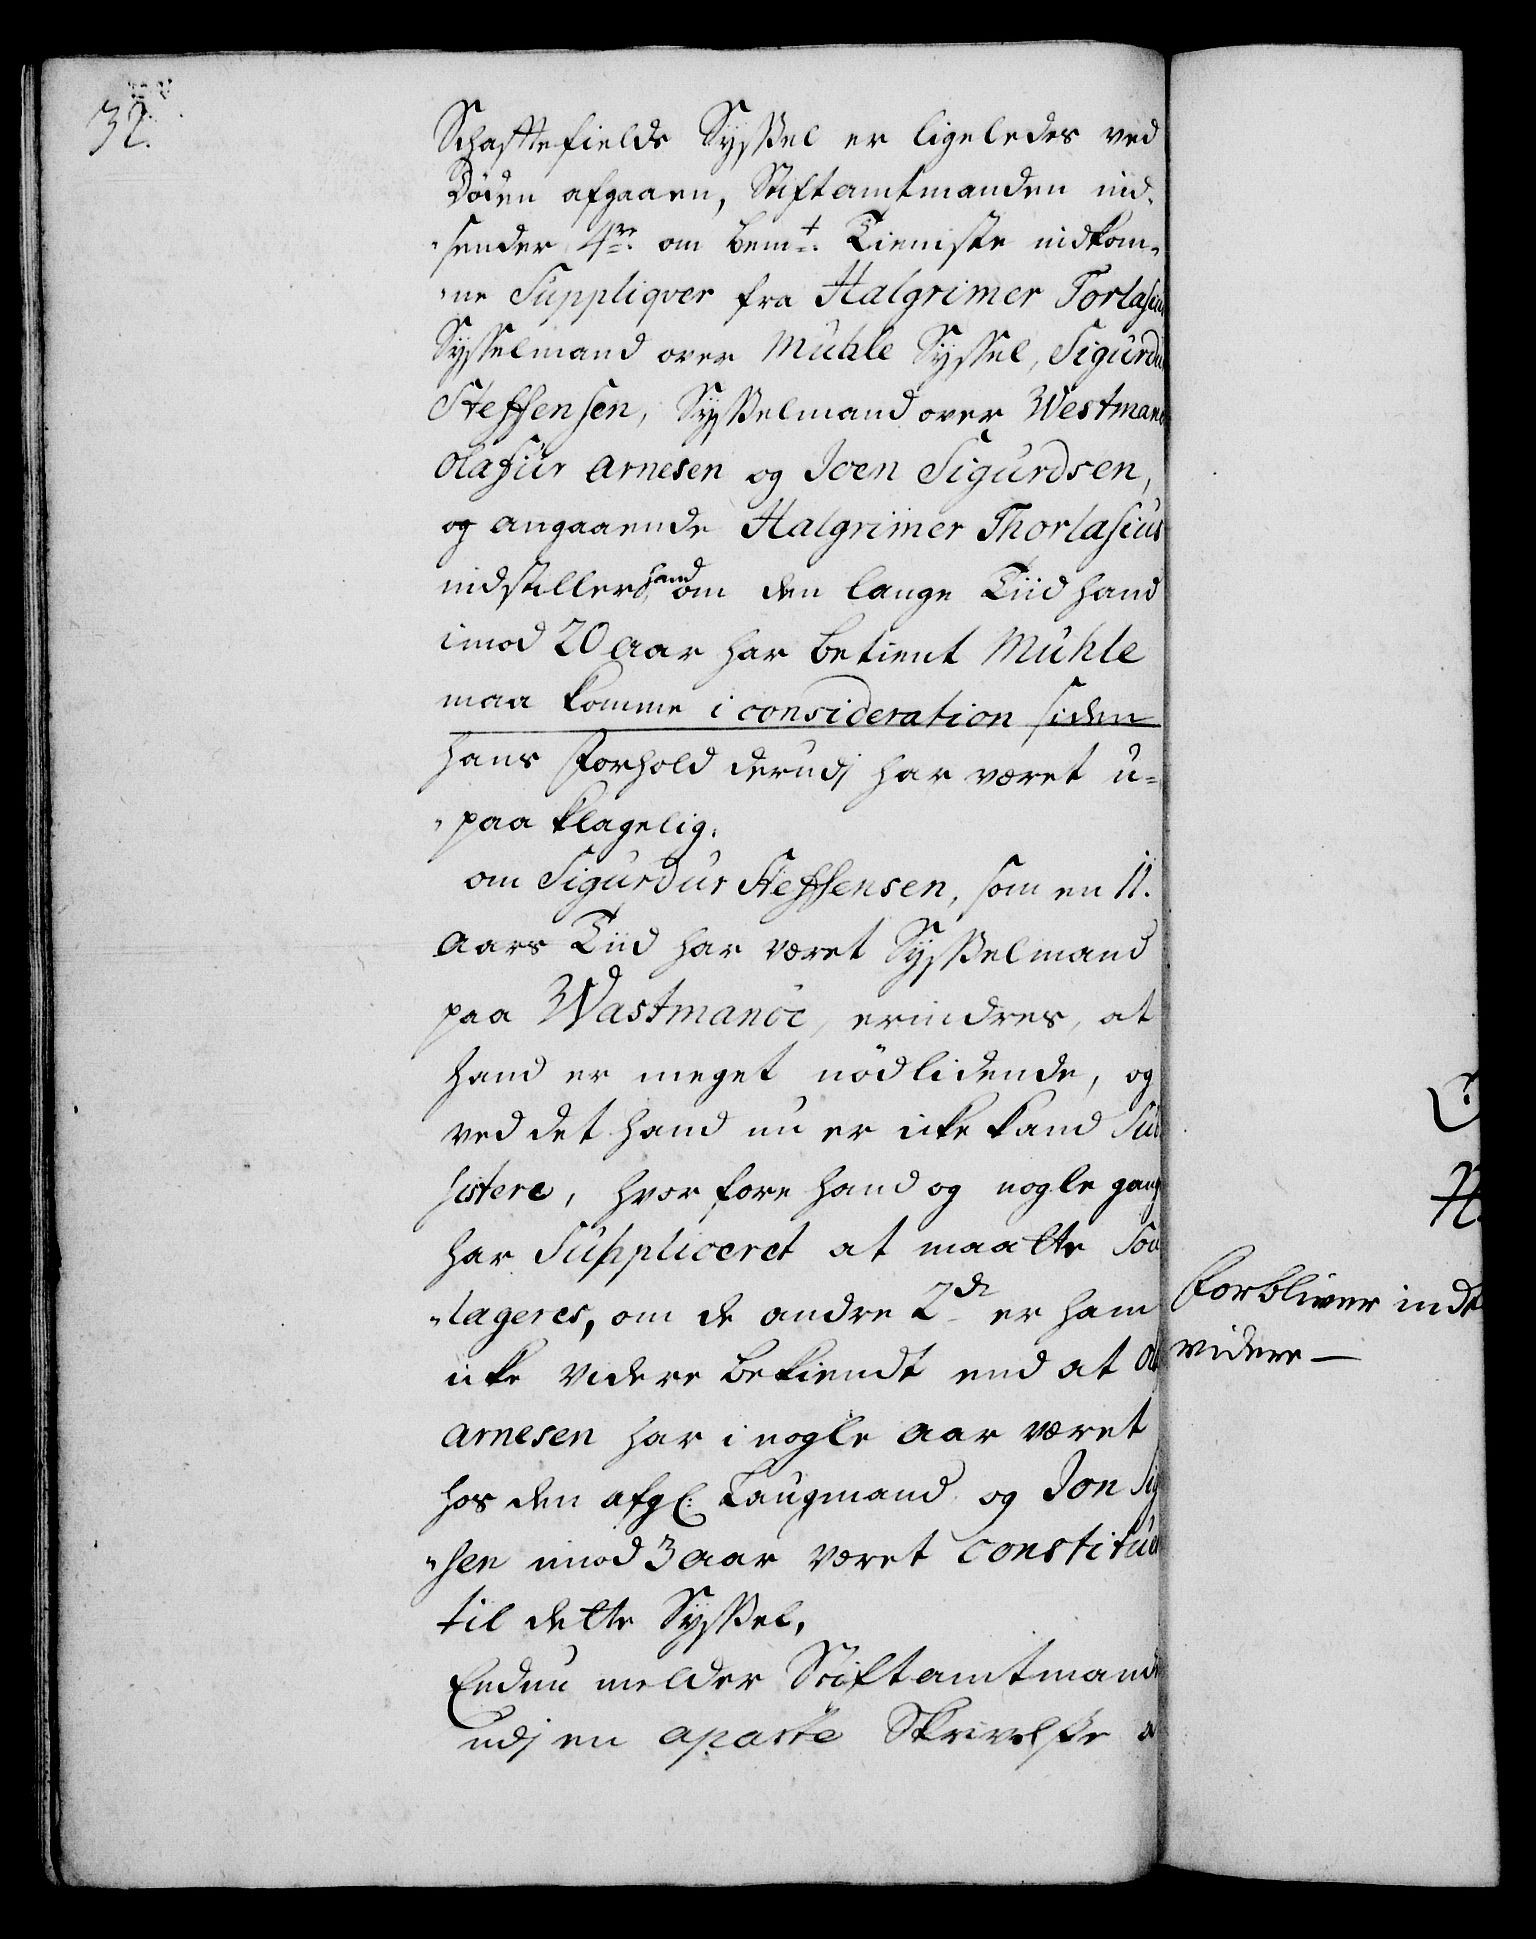 32.
Schafftefields Sysßel er ligeledes ved
Döden afgaaen, Stiftamtmanden ind-
„sender 4re om bemte Tieniste indkom-
„ne Suppliqver fra Halgrimer Torlasius
Sysselmand over Muhle Syssel, Sigurdur
Steffensen, Sysßelmand over Westman
Olafur Arnesen og Joen Sigurdsen,
og angaaende Halgrimer Thorlasius
indstiller hand om den lange Tiid hand
imod 20 aar har betient Muhle
maa komme i consideration siden
hans Forhold derudj har været u-
„paa klagelig.
om Sigurdur Steffensen, som en 11.
aars Tiid har været Sysßelmand
paa Wastmanöe, erindres, at
hand er meget nödlidende, og
ved det hand nu er icke kand Sub
sistere, hvorfore hand og nogle gang
har Suppliceret at maatte Sou
„lageres, om de andre 2de er ham
icke videre bekiendt end at Ol
Arnesen har i nogle aar været
hos den afgl: Laugmand og Jon Sig
„sen imod 3 aar været constitue
til dette Sysßel.
Endnu melder Stiftamtmand
udj en aparte Skrivelse a
Forbliver indt
videre —